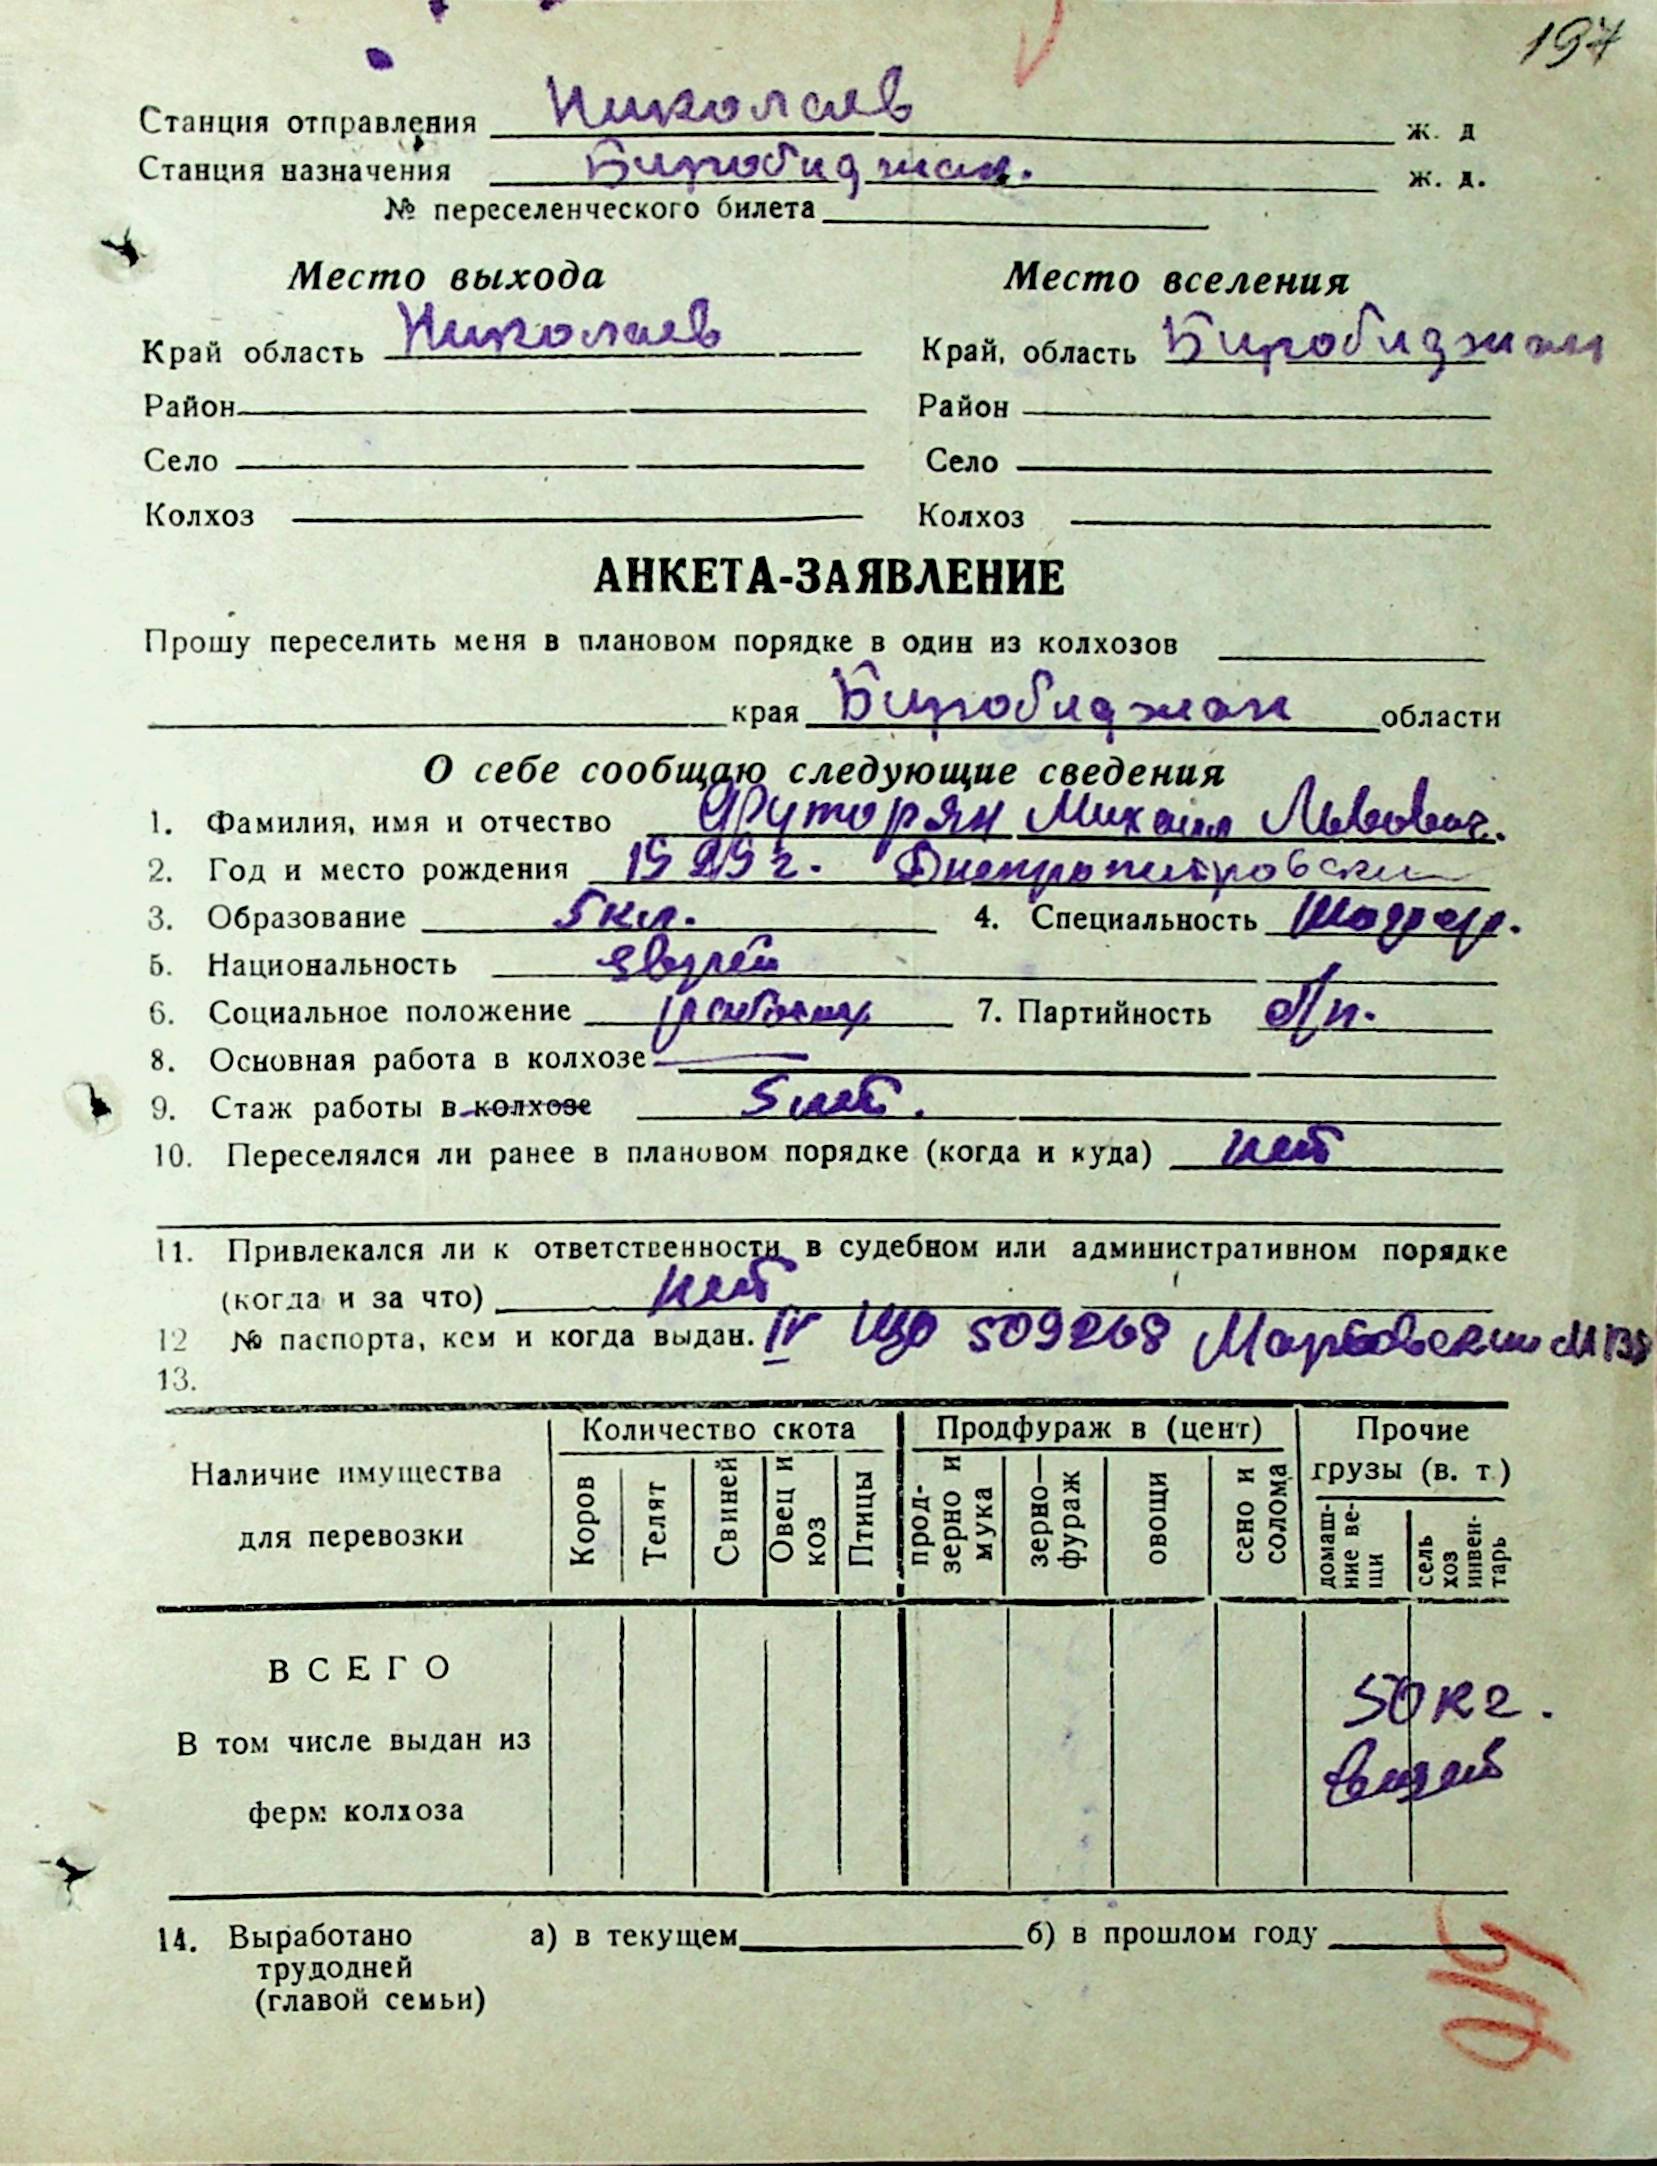 197
Станция отправления Николаев ж. д
Станция назначения Биробиджан. ж. д.
№ переселенческого билета
Место выхода Место вселения
Край область Николаев Край, область Биробиджан
Район Район
Село Село
Колхоз Колхоз
АНКЕТА-ЗАЯВЛЕНИЕ
Прошу переселить меня в плановом порядке в один из колхозов
края Биробиджан области
О себе сообщаю следующие сведения
1. Фамилия, имя и отчество Фруторян Михаил Львович.
2. Год и место рождения 1929 г. Днепропетровск
3. Образование 5 кл. 4. Специальность Шофер.
5. Национальность еврей
6. Социальное положение рабочих 7. Партийность б/п.
8. Основная работа в колхозе
9. Стаж работы в колхозе 5 лет.
10. Переселялся ли ранее в плановом порядке (когда и куда) нет
11. Привлекался ли к ответственности в судебном или административном порядке
(когда и за что) нет
12 № паспорта, кем и когда выдан. IV 509268
13.
Количество скота Продфураж в (цент) Прочие
грузы (в. т.)
Наличие имущества
для перевозки
Коров Телят Свиней Овец и коз Птицы прод-зерно и мука зерно—фураж овощи сено и солома домаш-ние ве-щи сель хоз инвен-тарь
ВСЕГО
50 кг.
В том числе выдан из
вещей
ферм колхоза
14. Выработано а) в текущем б) в прошлом году
трудодней
(главой семьи)